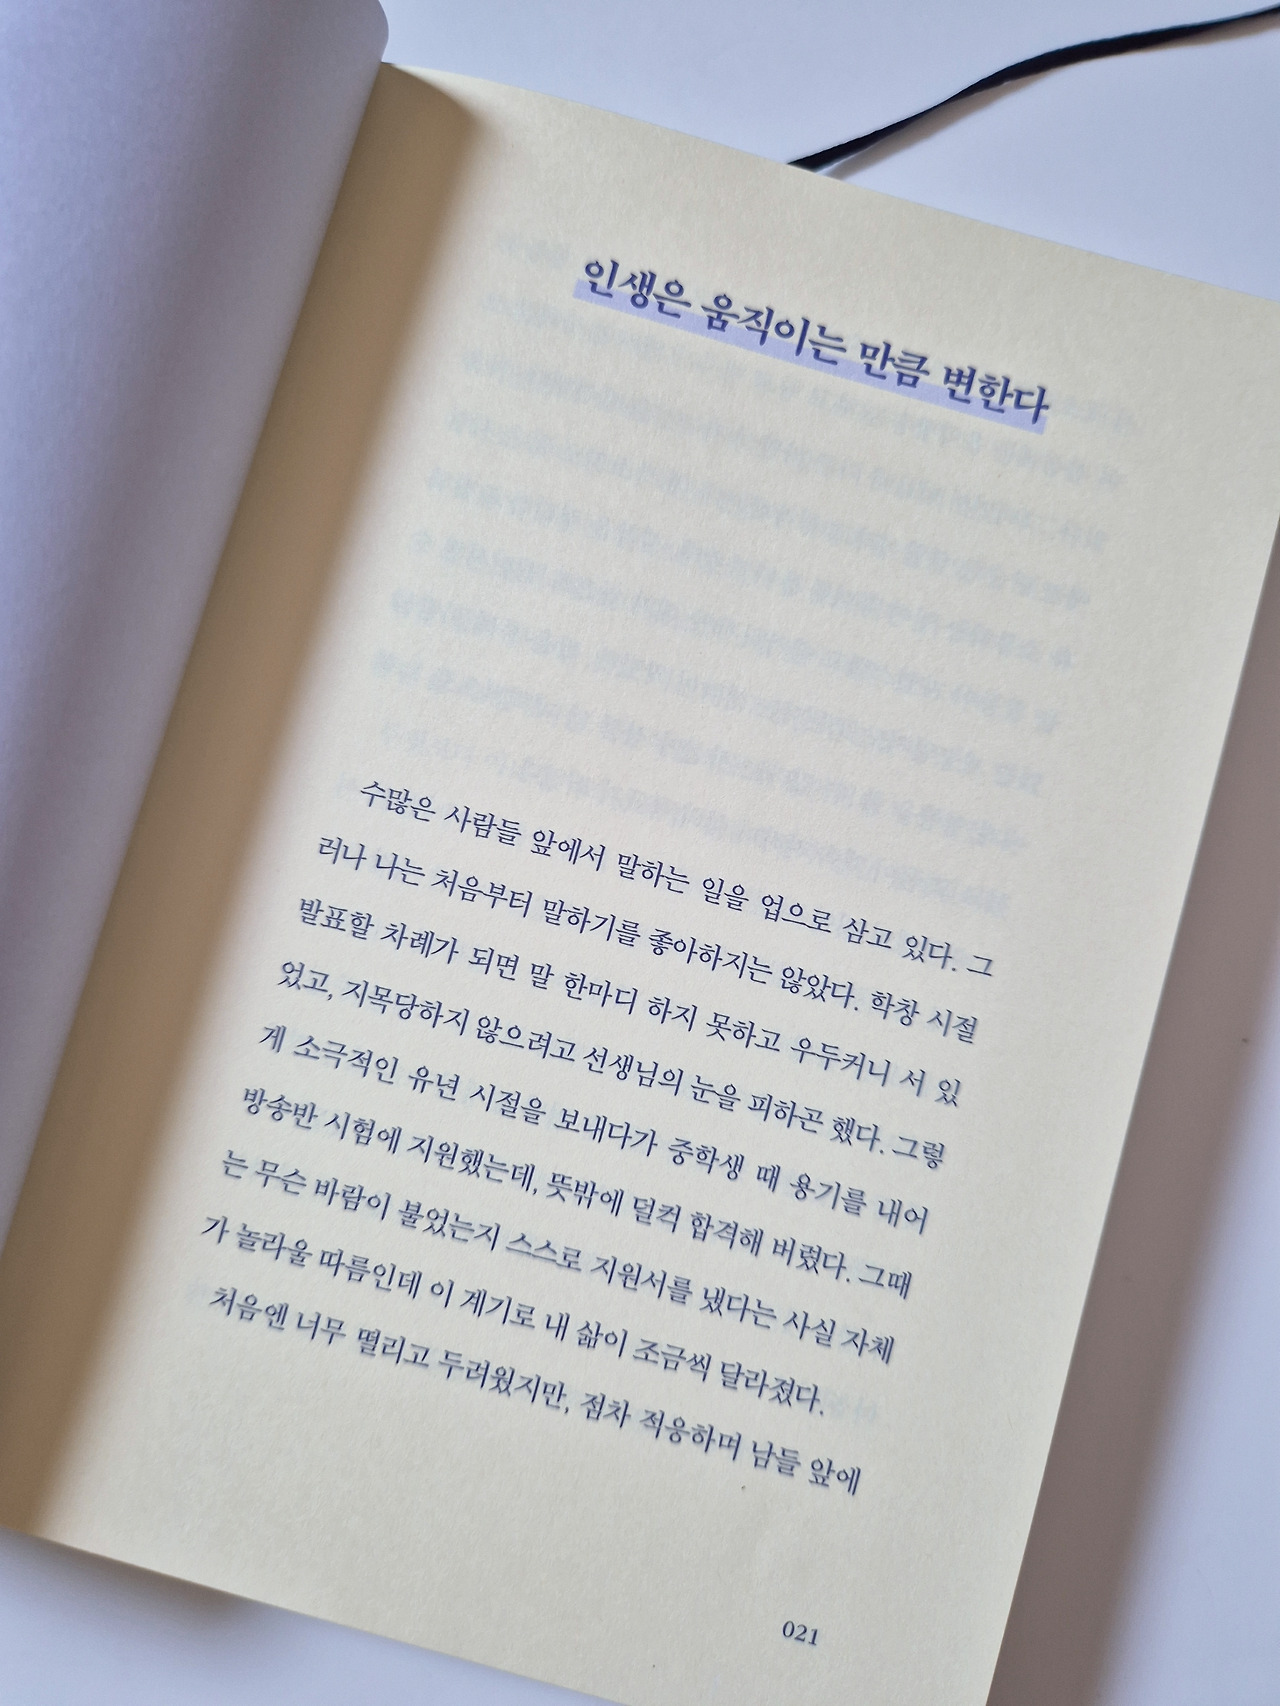 인생은 움직이는 만큼 변한다
수많은 사람들 앞에서 말하는 일을 업으로 삼고 있다. 그
러나 나는 처음부터 말하기를 좋아하지는 않았다. 학창 시절
발표할 차례가 되면 말 한마디 하지 못하고 우두커니 서 있
었고, 지목당하지 않으려고 선생님의 눈을 피하곤 했다. 그렇
게 소극적인 유년 시절을 보내다가 중학생 때 용기를 내어
방송반 시험에 지원했는데, 뜻밖에 덜컥 합격해 버렸다. 그때
는 무슨 바람이 불었는지 스스로 지원서를 냈다는 사실 자체
가 놀라울 따름인데 이 계기로 내 삶이 조금씩 달라졌다.
처음엔 너무 떨리고 두려웠지만, 점차 적응하며 남들 앞에
021